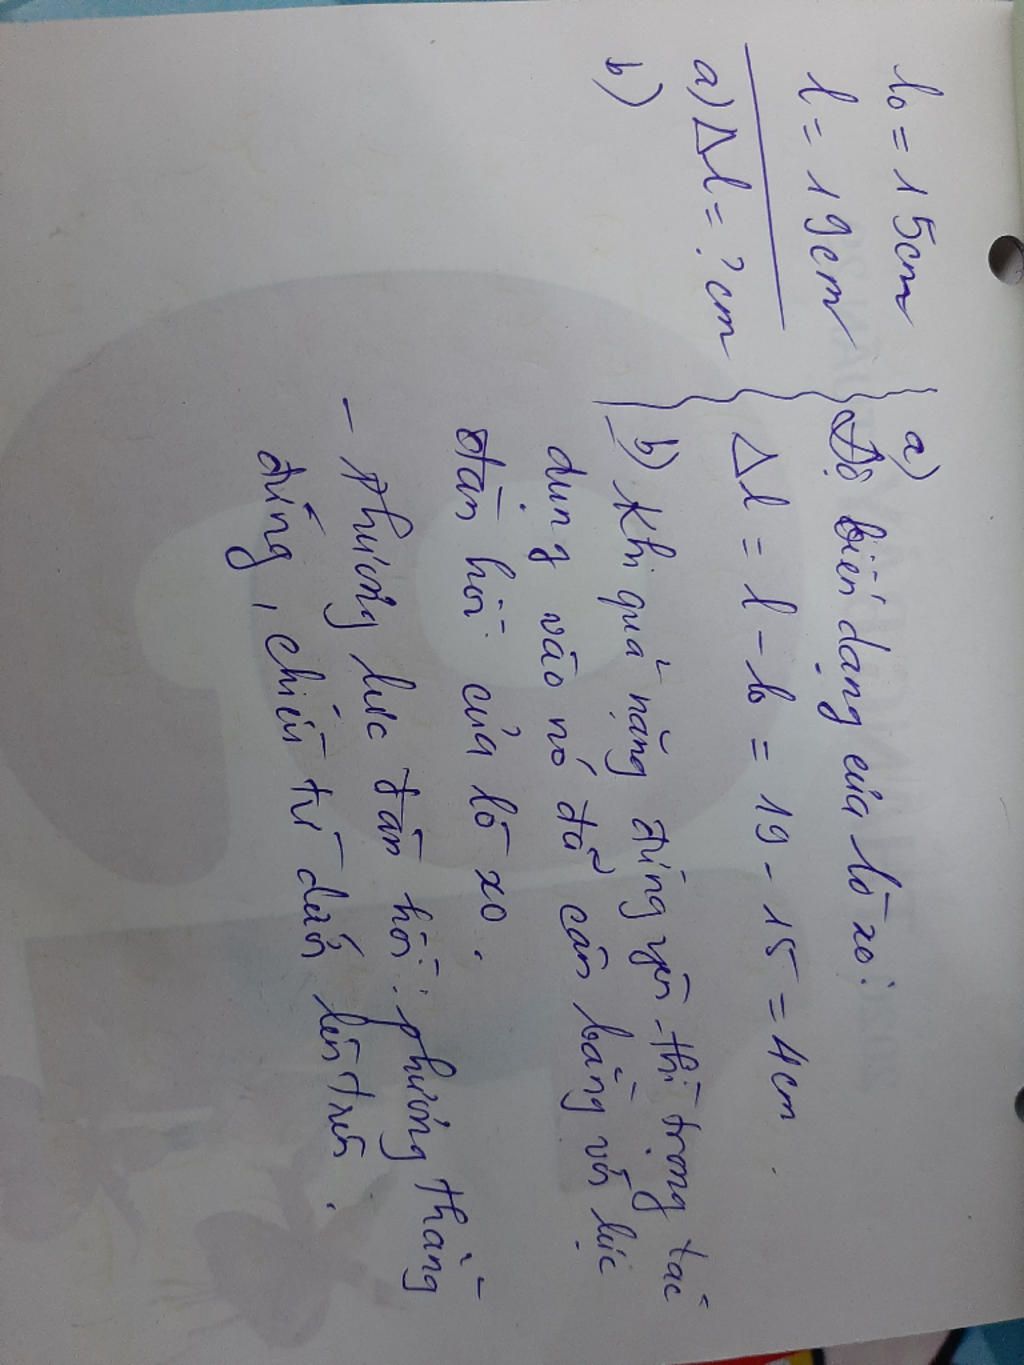 l₀ = 15cm
l = 19cm
a) Δl = ? cm
b)
a)
Độ biến dạng của lò xo:
Δl = l - l₀ = 19 - 15 = 4cm.
b) Khi quả nặng đứng yên thì trọng tác
dụng vào nó đã cân bằng với lực
đàn hồi của lò xo.
- Phương lực đàn hồi: phương thẳng
đứng, chiều từ dưới lên trên.